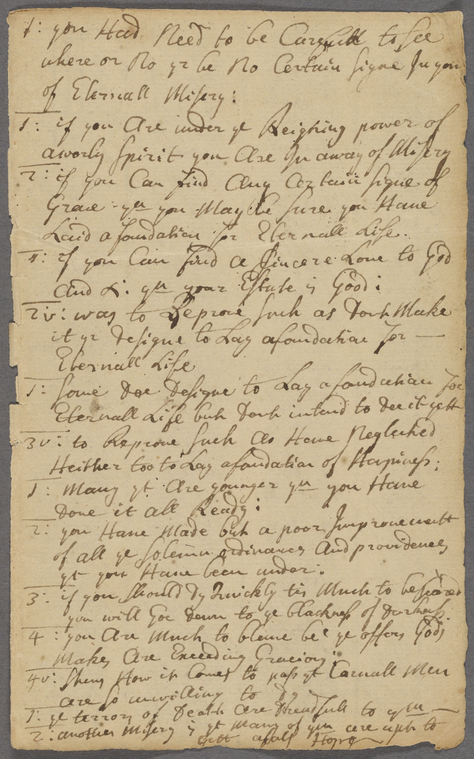 1: you Had Need to be Carefull to See
where or No yr be No Certain Signe In you
of Eternall Misery:
1: if you Are under ye Reighing power of
aworly Spirit you Are In away of Misery
2: if you Can find Any Certain Signe of
Grace yn you May be Sure you Have
Laid afoundation for Eternall Life.
if you Can find a Sincere Love to God
And yn your Estate is Good:
2iv: was to Reprove Such as Dont Make
it yr Designe to Lay afoundation for
Eternall Life
1: Some Doe Designe to Lay afoundation for
Eternall Life but Dont intend to Doe it yett
3v: to Reprove Such As Have Neglected
Heither too to Lay afoundation of Happiness:
1: Many yt Are younger yn you Have
Done it all Ready:
2: you Have Made but a poor Improvement
of all ye Solemn ordinances And providences
yt you Have been under:
3: if you Should Dy Quickly tis Much to be feared
you will Goe Down to ye blackness of Darkness
4: you Are Much to blame be ye offers God
Makes Are Exceeding Gracious:
4v: Shews How it Comes to pass yt Carnall Men
are So unwilling to Dy
1: ye terrors of Death Are Dreadfull to ym
2: another Misery is yt Many of ym are apt to
Gett afals Hope